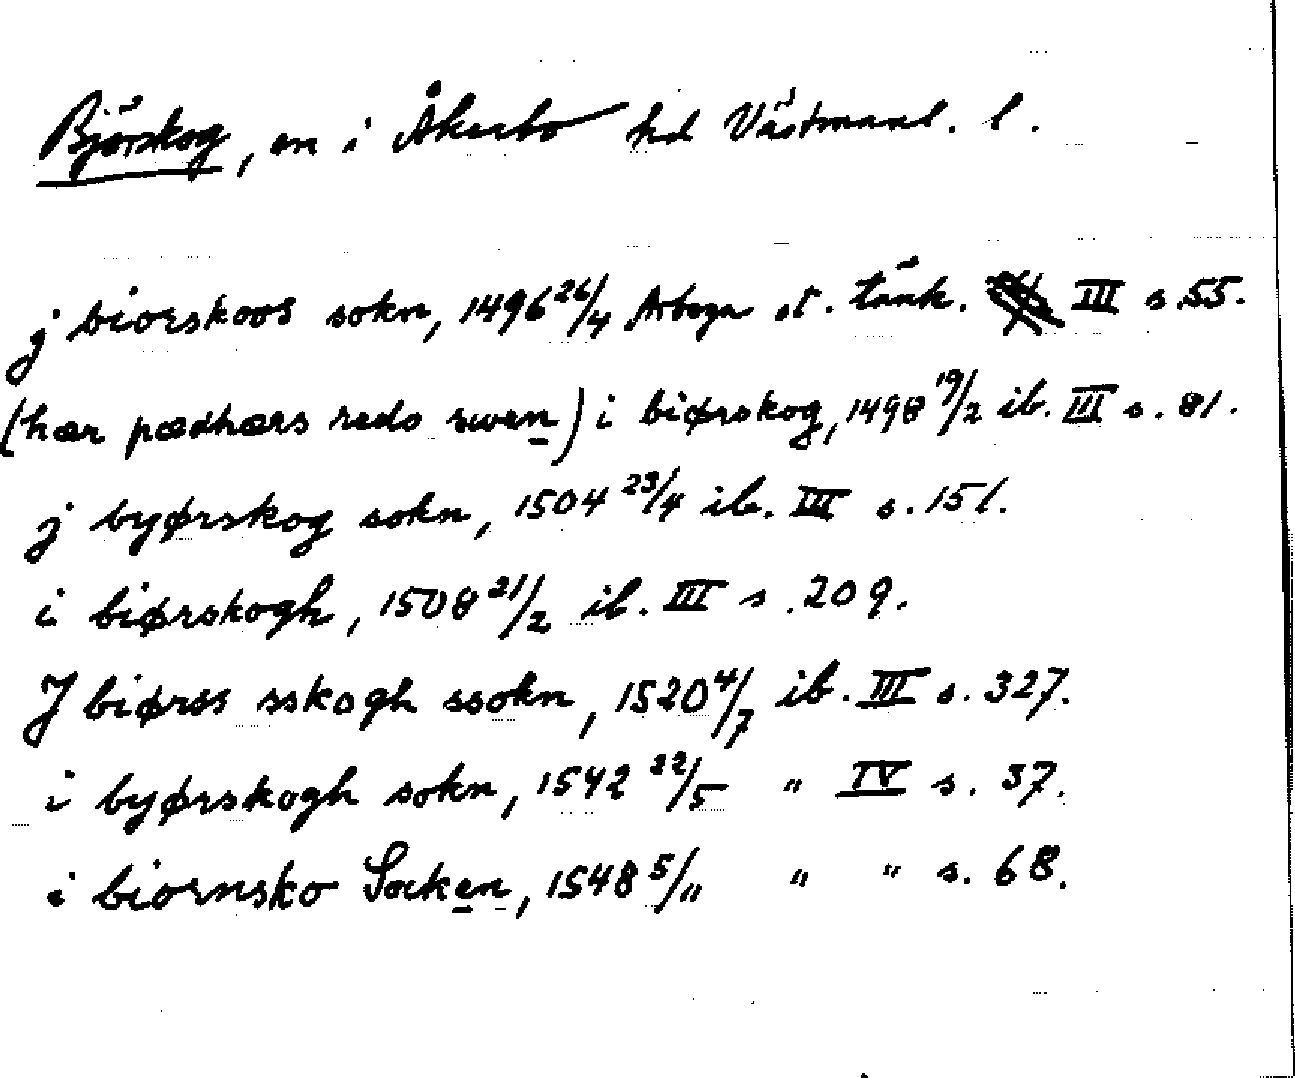 Björskog, sn i Åkerbo hd Västmanl. l.
j biorskoos sokn, 1496 26/4 Arboga st. tänk. III s. 55.
(hær pædhærs redo swen) i biørskog, 1498 19/2 ib. III s. 81.
j byørskog sokn, 1504 23/4 ib. III s. 151.
i biørskogh, 1508 21/2 ib. III s. 209.
J biørss sskogh ssokn, 1520 4/7 ib. III s. 327.
i byørskogh sokn, 1542 22/5 " IV s. 37.
i biornsko Socken, 1548 5/11 " " s. 68.